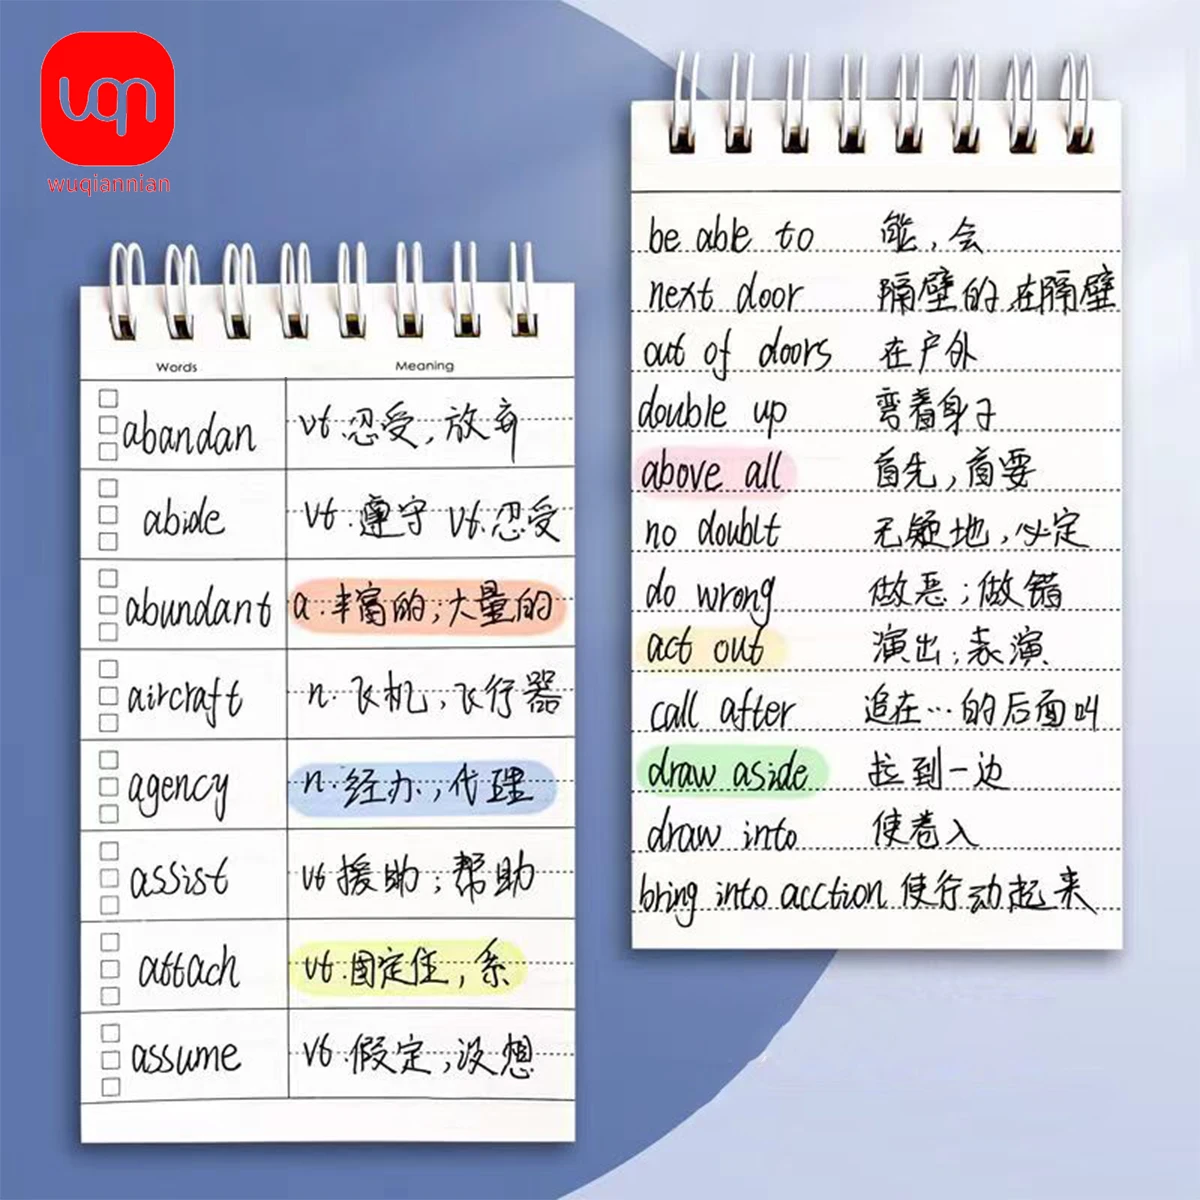 wuqiannian
Words Meaning
abandan vt.忍受,放弃
abide vt.遵守 vt.忍受
abundant a.丰富的;大量的
aircraft n.飞机,飞行器
agency n.经办;代理
assist vt援助;帮助
attach vt.固定住,系
assume vt.假定;设想
be able to 能,会
next door 隔壁的 在隔壁
out of doors 在户外
double up 弯着身子
above all 首先,首要
no doublt 无疑地,必定
do wrong 做恶;做错
act out 演出;表演
call after 追在…的后面叫
draw aside 拉到一边
draw into 使卷入
bring into acction 使行动起来